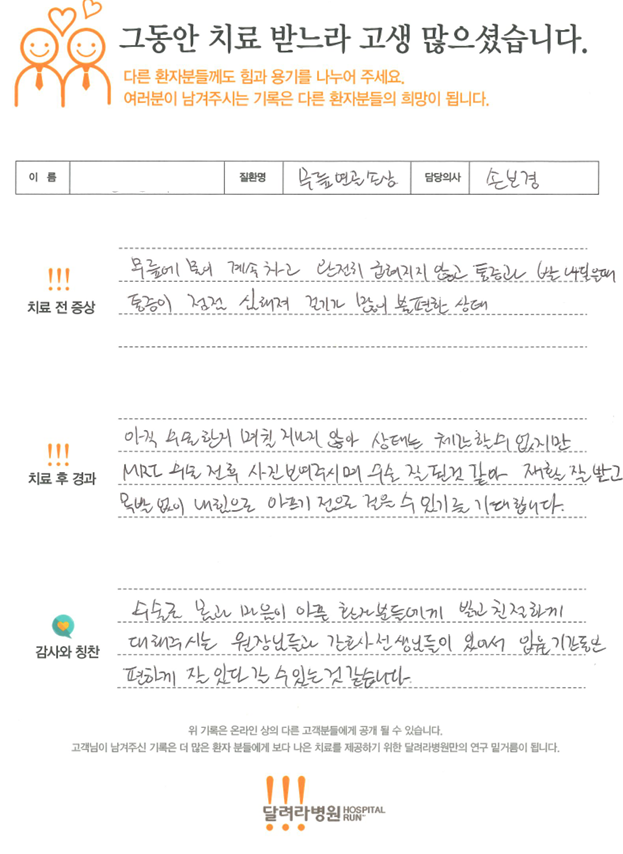 그동안 치료 받느라 고생 많으셨습니다.
다른 환자분들께도 힘과 용기를 나누어 주세요.
여러분이 남겨주시는 기록은 다른 환자분들의 희망이 됩니다.
이 름 질환명 무릎연골손상 담당의사 손보경
!!!
치료 전 증상
무릎에 물이 계속 차고 완전히 굽혀지지 않고 통증과 발 내딛을때
통증이 점점 심해져 걷기가 많이 불편한 상태
!!!
치료 후 경과
아직 수술한지 며칠 지나지 않아 상태는 체감할수 없지만
MRI 수술 전후 사진 보여주시며 수술 잘 된것 같아 재활 잘 받고
목발 없이 내힘으로 아프기 전으로 걸을 수 있기를 기대합니다.
감사와 칭찬
수술로 몸과 마음이 아픈 환자분들에게 밝고 친절하게
대해주시는 원장님들과 간호사선생님들이 있어서 입원기간동안
편하게 잘 있다 갈 수 있는 것 같습니다.
위 기록은 온라인 상의 다른 고객분들에게 공개 될 수 있습니다.
고객님이 남겨주신 기록은 더 많은 환자 분들에게 보다 나은 치료를 제공하기 위한 달려라병원만의 연구 밑거름이 됩니다.
!!!
달려라병원 HOSPITAL RUN